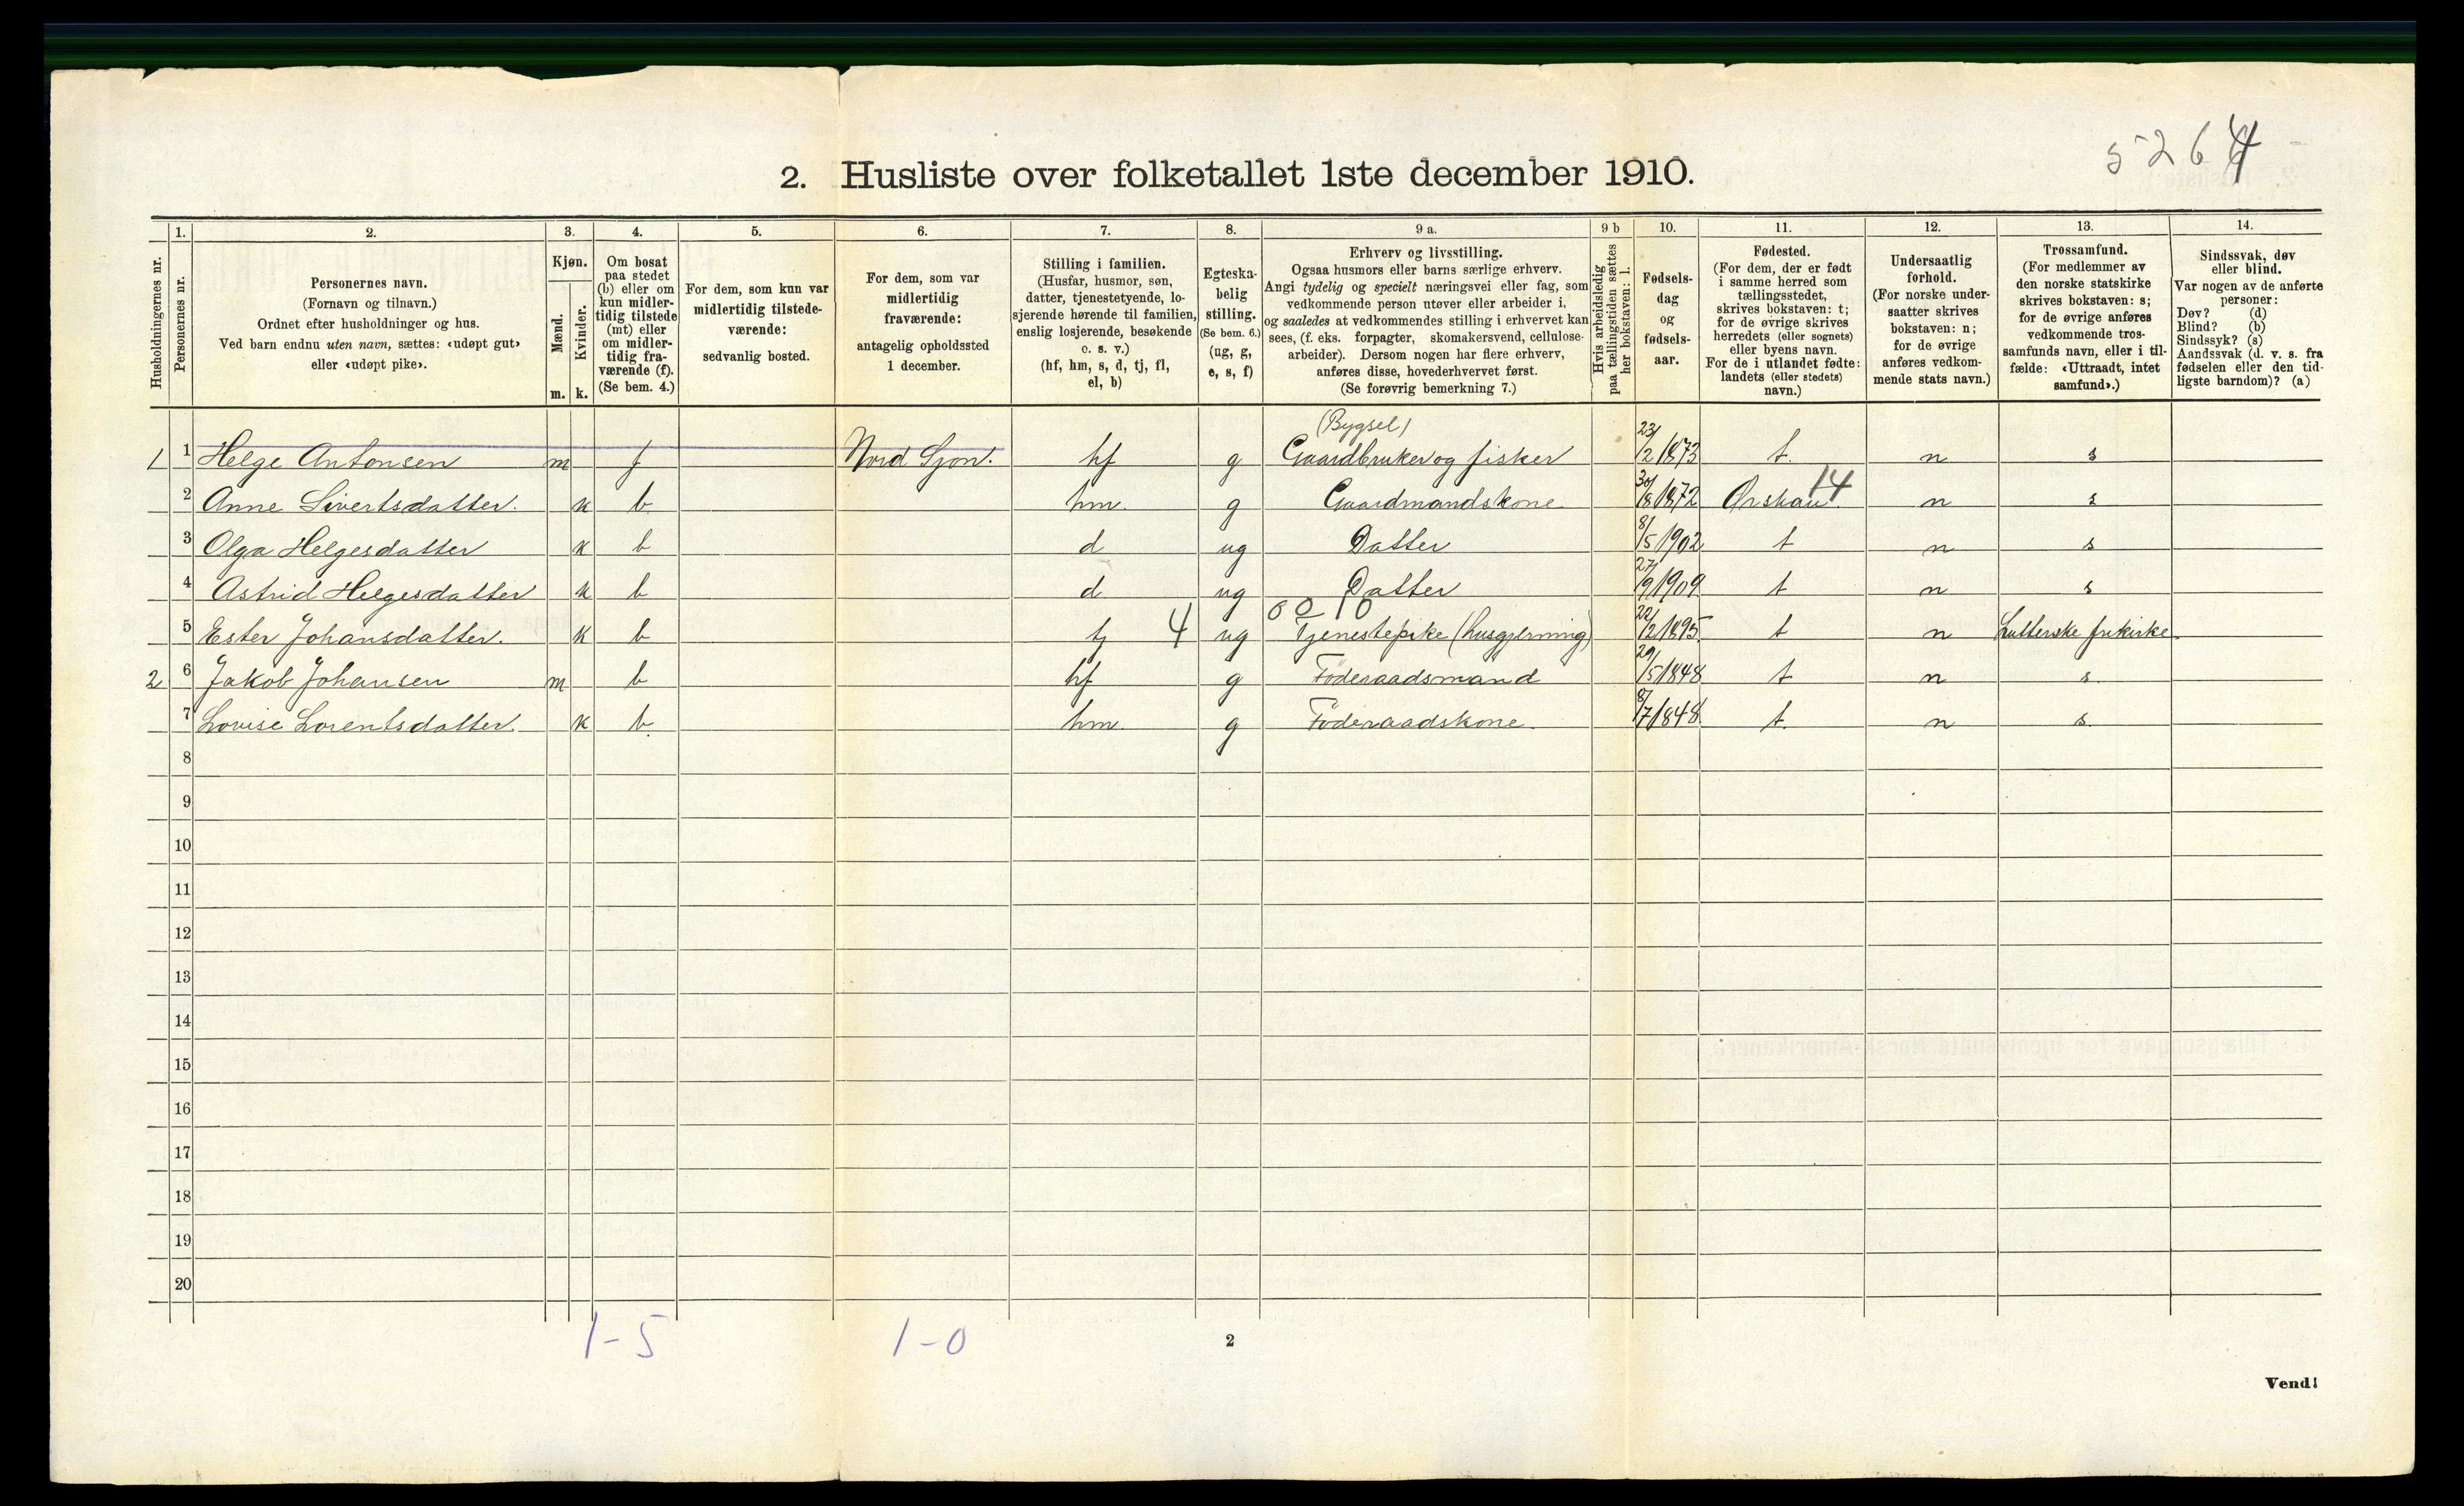 5264
2. Husliste over folketallet 1ste december 1910.
Husholdningernes nr.
1.
Personernes nr.
2.
Personernes navn.
(Fornavn og tilnavn.)
Ordnet efter husholdninger og hus.
Ved barn endnu uten navn, sættes: «udøpt gut»
eller «udøpt pike».
3.
Kjøn.
Mænd.
Kvinder.
m. k.
4.
Om bosat
paa stedet
(b) eller om
kun midler-
tidig tilstede
(mt) eller
om midler-
tidig fra-
værende (f).
(Se bem. 4.)
5.
For dem, som kun var
midlertidig tilstede-
værende:
sedvanlig bosted.
6.
For dem, som var
midlertidig
fraværende:
antagelig opholdssted
1 december.
7.
Stilling i familien.
(Husfar, husmor, søn,
datter, tjenestetyende, lo-
sjerende hørende til familien,
enslig losjerende, besøkende
o. s. v.)
(hf, hm, s, d, tj, fl,
el, b)
8.
Egteska-
belig
stilling.
(Se bem. 6.)
(ug, g,
e, s, f)
9 a.
Erhverv og livsstilling.
Ogsaa husmors eller barns særlige erhverv.
Angi tydelig og specielt næringsvei eller fag, som
vedkommende person utøver eller arbeider i,
og saaledes at vedkommendes stilling i erhvervet kan
sees, (f. eks. forpagter, skomakersvend, cellulose-
arbeider). Dersom nogen har flere erhverv,
anføres disse, hovederhvervet først.
(Se forøvrig bemerkning 7.)
9 b
Hvis arbeidsledig
paa tællingstiden sættes
her bokstaven: l.
10.
Fødsels-
dag
og
fødsels-
aar.
11.
Fødested.
(For dem, der er født
i samme herred som
tællingsstedet,
skrives bokstaven: t;
for de øvrige skrives
herredets (eller sognets)
eller byens navn.
For de i utlandet fødte:
landets (eller stedets)
navn.)
12.
Undersaatlig
forhold.
(For norske under-
saatter skrives
bokstaven: n;
for de øvrige
anføres vedkom-
mende stats navn.)
13.
Trossamfund.
(For medlemmer av
den norske statskirke
skrives bokstaven: s;
for de øvrige anføres
vedkommende tros-
samfunds navn, eller i til-
fælde: «Uttraadt, intet
samfund».)
14.
Sindssvak, døv
eller blind.
Var nogen av de anførte
personer:
Døv? (d)
Blind? (b)
Sindssyk? (s)
Aandssvak (d. v. s. fra
fødselen eller den tid-
ligste barndom)? (a)
(Bygsel)
1 1 Helge Antonsen m f Nord Sjon. hf g Gaardbruker og fisker 23/2 1873 t. n s
2 Anne Sivertsdatter. k b hm. g Gaardmandskone 30/8 1872 Ørskau. 14 n s
3 Olga Helgesdatter k b d ug Datter 8/5 1902 t n s
4 Astrid Helgesdatter k b d ug Datter 27/9 1909 t n s
5 Ester Johansdatter. k b tj 4 ug Tjenestepike (husgjerning) 22/2 1895 t n Lutterske frikirke.
2 6 Jakob Johansen m b hf g Föderaadsmand 29/5 1848 t n s.
7 Lovise Lorentsdatter. k b. hm. g Föderaadskone. 8/7 1848. t. n s.
8
9
10
11
12
13
14
15
16
17
18
19
20
1-5 1-0
2
Vend!